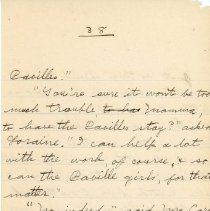 38
Bavilles."
"You're sure it wont be too
much trouble to has Mamma,
to have the Bavilles stay?" asked
Doraine. "I can help a lot
with the work of course, & so
can the Baville girls, for that
matter."
"No indeed," said Mrs Car